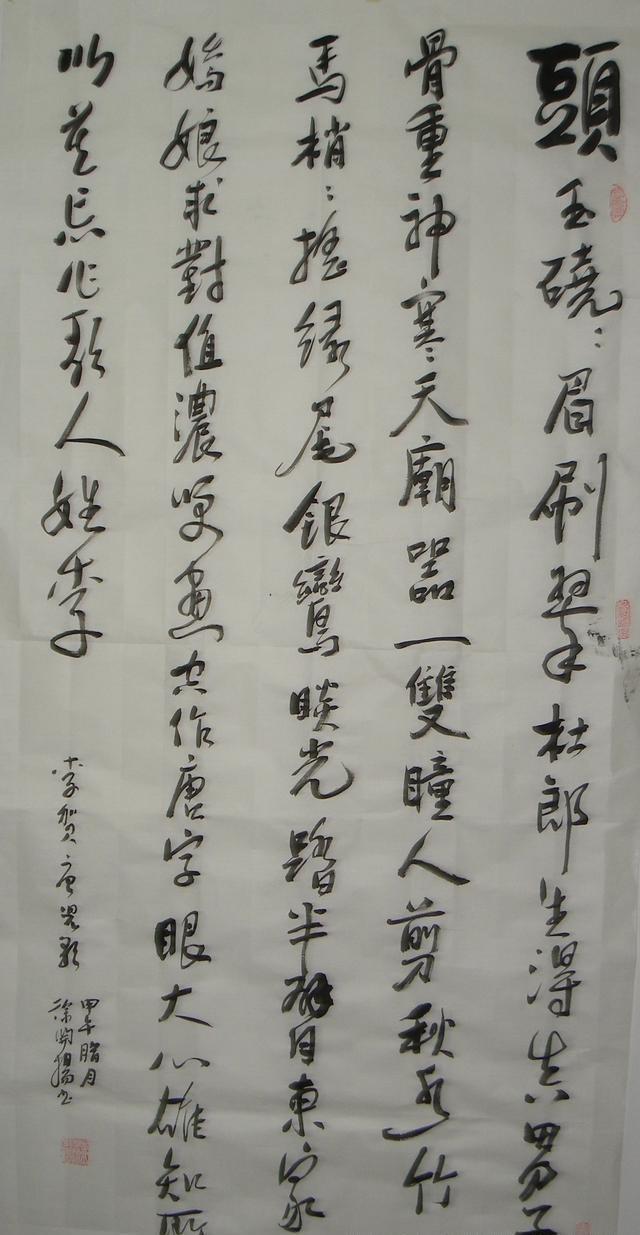 頭玉磽〻眉刷翠杜郎生得真男子
骨重神寒天廟器一雙瞳人剪秋水竹
馬梢〻搖緑尾銀鸞睒光踏半臂東家
嬌娘求對值濃笑書空作唐字眼大心雄知所
以莫忘作歌人姓李
李賀唐兒歌
甲午腊月
徐書